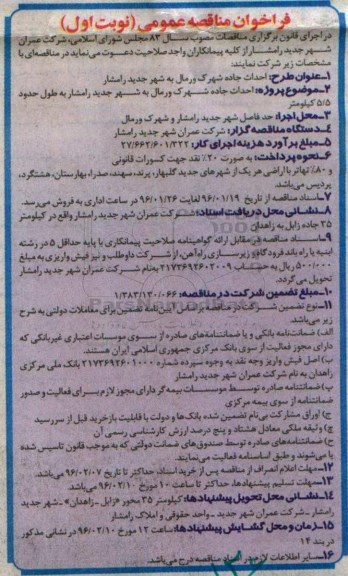 فراخوان مناقصه عمومی (نوبت اول)
در اجرای قانون برگزاری مناقصات مصوب سال ۸۳ مجلس شورای اسلامی، شرکت عمران
شهر جدید رامشار از کلیه پیمانکاران واجد صلاحیت دعوت می‌نماید در مناقصه‌ای با
مشخصات زیر شرکت نمایند:
۱-عنوان طرح: احداث جاده شهرک ورمال به شهر جدید رامشار
۲-موضوع پروژه: احداث جاده شهرک ورمال به شهر جدید رامشار به طول حدود
۵/۵ کیلومتر
۳-محل اجرا: حد فاصل شهر جدید رامشار و شهرک ورمال
۴-دستگاه مناقصه گزار: شرکت عمران شهر جدید رامشار
۵-مبلغ برآورد هزینه اجرای کار: ۲۷/۶۶۲/۶۰۱/۳۲۲
۶-نحوه پرداخت: به صورت ۲۰٪ نقد جهت کسورات قانونی
و ۸۰٪ تهاتر با اراضی هر یک از شهرهای جدید گلبهار، پرند، سهند، صدرا، بهارستان، هشتگرد،
پردیس می‌باشد.
۷-اسناد مناقصه از تاریخ ۹۶/۰۱/۱۹ لغایت ۹۶/۰۱/۲۶ در ساعت اداری به فروش می‌رسد.
۸-نشانی محل دریافت اسناد: شرکت عمران شهر جدید رامشار واقع در کیلومتر
۳۵ جاده زابل به زاهدان
۹-اسناد مناقصه در مقابل ارائه گواهینامه صلاحیت پیمانکاری با پایه حداقل ۵ در رشته
ابنیه یا راه باند فرودگاه و زیرسازی راه‌آهن، از شرکت داوطلب و نیز فیش واریزی به مبلغ
۵۰۰/۰۰۰ ریال به حساب ۲۱۷۳۶۹۲۶۰۲۰۰۹ به‌نام شرکت عمران شهر جدید رامشار
تحویل می‌گردد.
۱۰-مبلغ تضمین شرکت در مناقصه: ۱/۳۸۳/۱۳۰/۰۶۶
۱۱-نوع تضمین شرکت در مناقصه براساس آیین‌نامه تضمین برای معاملات دولتی به شرح
زیر می‌باشد.
الف) ضمانت‌نامه بانکی و یا ضمانتنامه‌های صادره از سوی موسسات اعتباری غیربانکی که
دارای مجوز فعالیت از سوی بانک مرکزی جمهوری اسلامی ایران هستند.
ب) اصل فیش واریز وجه نقد به وجوه سپرده شماره ۲۱۷۳۶۹۲۶۰۱۰۰۰ بانک ملی مرکزی
زاهدان به نام شرکت عمران شهر جدید رامشار
پ) ضمانتنامه صادره توسط موسسات بیمه‌گر دارای مجوز لازم برای فعالیت و صدور
ضمانتنامه از سوی بیمه مرکزی
ج) اوراق مشارکت بی‌نام تضمین شده بانک‌ها و دولت با قابلیت بازخرید قبل از سررسید
چ) وثیقه ملکی معادل هشتاد و پنج درصد ارزش کارشناسی رسمی آن
ح) ضمانتنامه‌های صادره توسط صندوق‌های ضمانت دولتی که به موجب قانون تاسیس شده
یا می‌شوند و طبق اساسنامه فعالیت می‌نمایند.
۱۲-مهلت اعلام انصراف از مناقصه پس از خرید اسناد، حداکثر تا تاریخ ۹۶/۰۲/۰۷ می‌باشد.
۱۳-مهلت تسلیم پیشنهادها، حداکثر تا ساعت ۱۰ مورخ ۹۶/۰۲/۱۰ می‌باشد.
۱۴-نشانی محل تحویل پیشنهادها: کیلومتر ۳۵ محور «زابل -زاهدان» -شهر جدید
رامشار -شرکت عمران شهر جدید -واحد حقوقی و املاک رامشار
۱۵-زمان و محل گشایش پیشنهادها: ساعت ۱۲ مورخ ۹۶/۰۲/۱۰ در نشانی مذکور
در بند ۱۴
۱۶-سایر اطلاعات لازم در اسناد مناقصه درج می‌باشد.